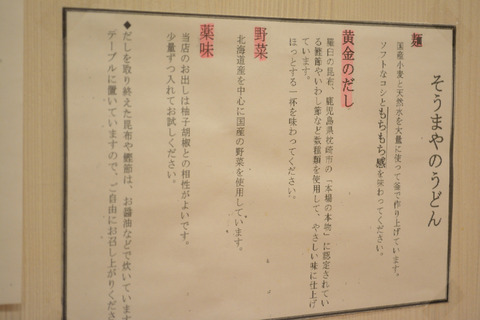 そうまやのうどん
麺
国産小麦と天然水を大量に使って釜で作り上げています。
ソフトなコシともちもち感を味わってください。
黄金のだし
羅臼の昆布、鹿児島県枕崎市の「本場の本物」に認定されてい
る鰹節やいわし節など数種類を使用して、やさしい味に仕上げ
ています。
ほっとする一杯を味わってください。
野菜
北海道産を中心に国産の野菜を使用しています。
薬味
当店のお出しは柚子胡椒との相性がよいです。
少量ずつ入れてお試しください。
◆だしを取り終えた昆布や鰹節は、お醤油などで炊いています
テーブルに置いていますので、ご自由にお召し上がりくださ